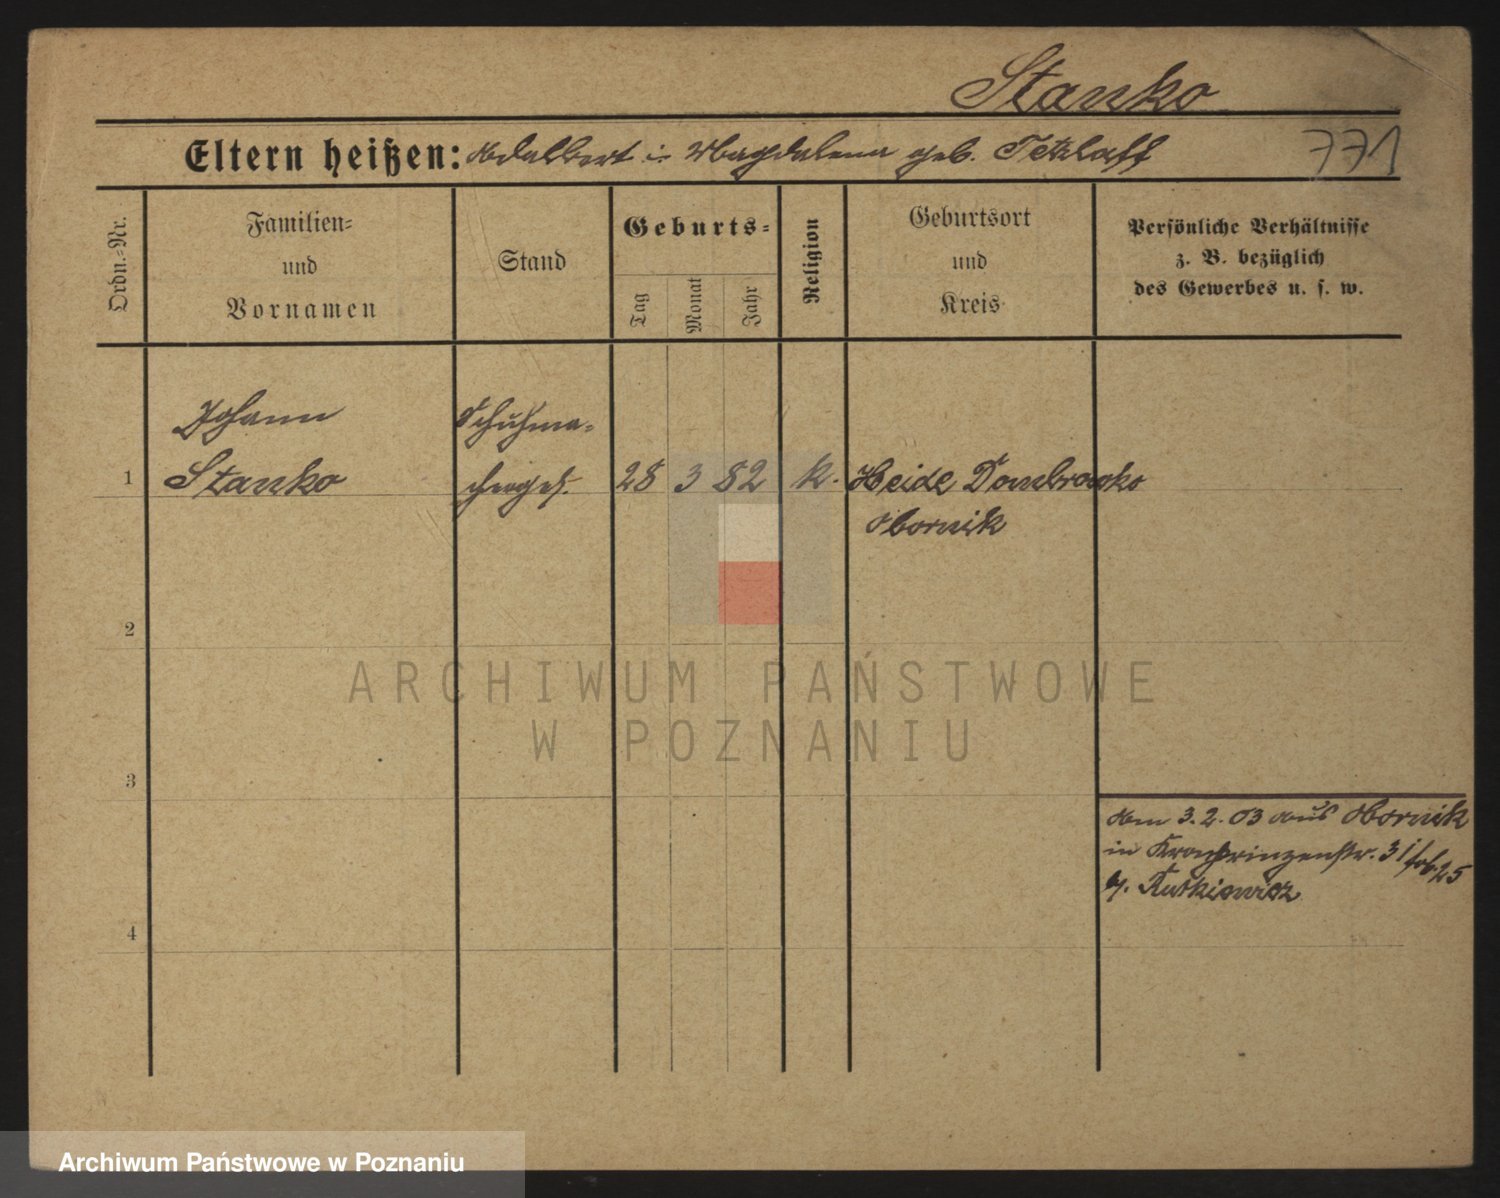 Stanko
Eltern heißen: Adalbert u. Magdalena geb. Tetzlaff
771
Ordn.-Nr.
Familien-
und
Vornamen
Stand
Geburts-
Tag
Monat
Jahr
Religion
Geburtsort
und
Kreis
Persönliche Verhältnisse
z. B. bezüglich
des Gewerbes u. s. w.
Johann
Schuhma-
1
Stanko
cherges.
28 3 82
k.
Heide Dombrowko
Obornik
2
ARCHIWUM PAŃSTWOWE
W POZNANIU
3
Am 3.2.03 aus Obornik
in Kronprinzenstr. 31
b. Rutkiewicz
4
Archiwum Państwowe w Poznaniu